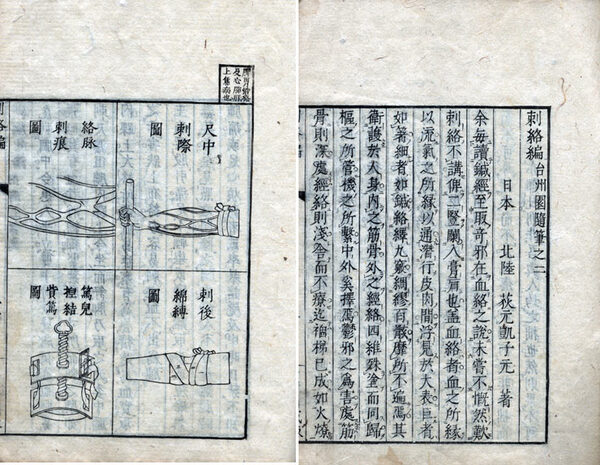 刺絡編 台州園隨筆之二
日本 北陸 荻元凱子元 著
余每讀鍼經至取奇邪在血絡之說未嘗不慨然歎
刺絡不講俾二豎顓入膏肓也蓋血絡者血之所緣
以流氣之所緣以通潛行皮肉間浮見於大表巨者
如箸細者如鍼絡繹蔓綢繆百散靡所不遍焉其
衛護於人身內之筋骨外之經絡四維殊途而同歸
樞之所管機之所繫中外奚擇焉鬱邪之為害處筋
骨則深處經絡則淺舍而不療迨已成如火燎
上焦病也
尺中
刺際
圖
絡脉
刺痕
圖
刺後
綿縛
圖
篤兒
捏結
賞篤
圖